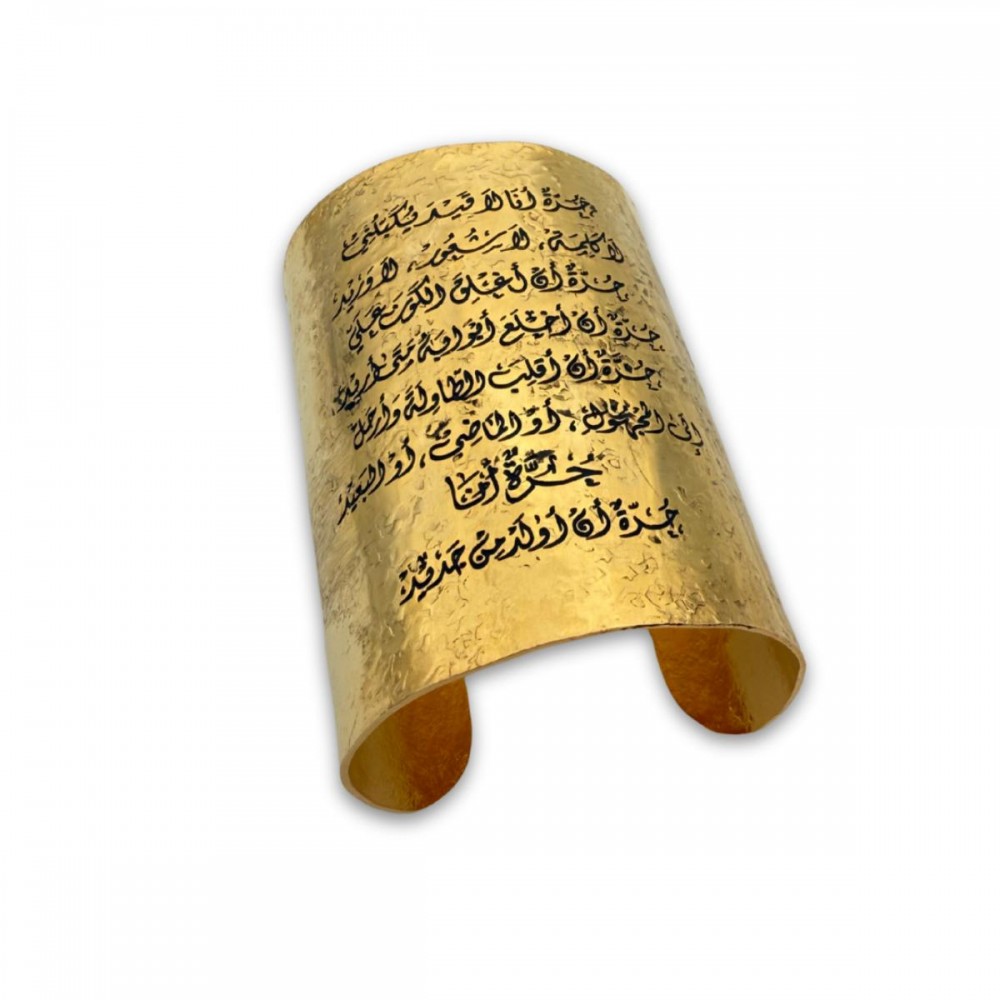 حُرَّةٌ أنَا لاَ قَيدَ يُكَبِّلُني
لاَ كَلِمَة، لاَ شُعُور، لاَ وَرِيد
حُرَّةٌ أنْ أُغْلِقَ الكَونَ عَلَيَّ
حُرَّةٌ أنْ أخلَعَ أبْوابَهُ مَتَى أُرِيد
حُرَّةٌ أنْ أقلِبَ الطّاوِلَةَ وَأرحَلَ
إلى المَجهُول، أوِ المَاضِي، أوِ البَعِيد
حُرَّةٌ أنَا
حُرَّةٌ أنْ أُولَدَ مِنْ جَدِيد